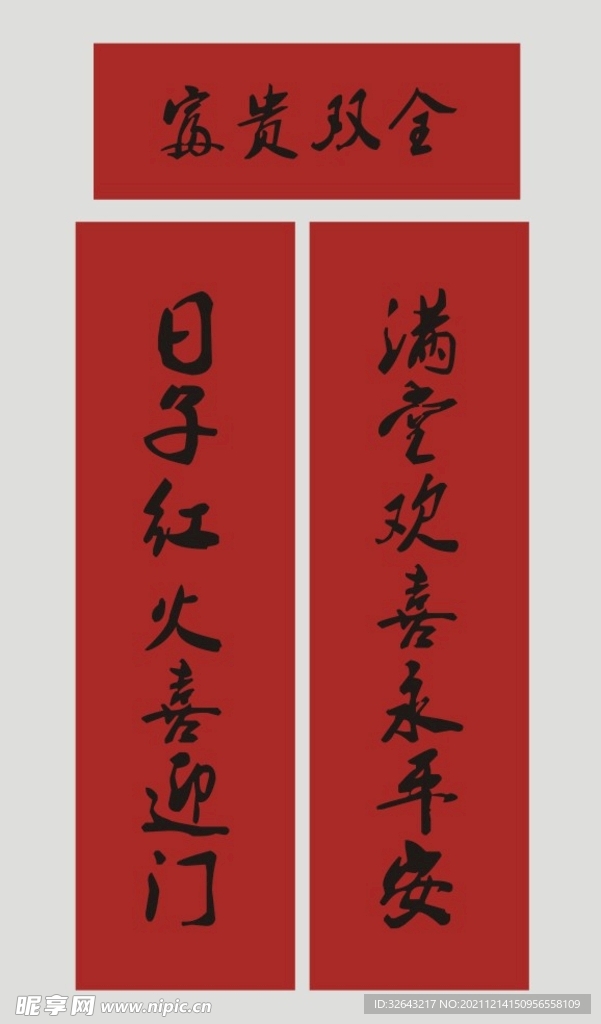 富贵双全
日子红火喜迎门
满堂欢喜永平安
昵享网 www.nipic.cn
ID:32643217 NO:20211214150956558109